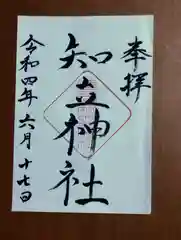 奉拝
知立神社
令和四年六月十七日